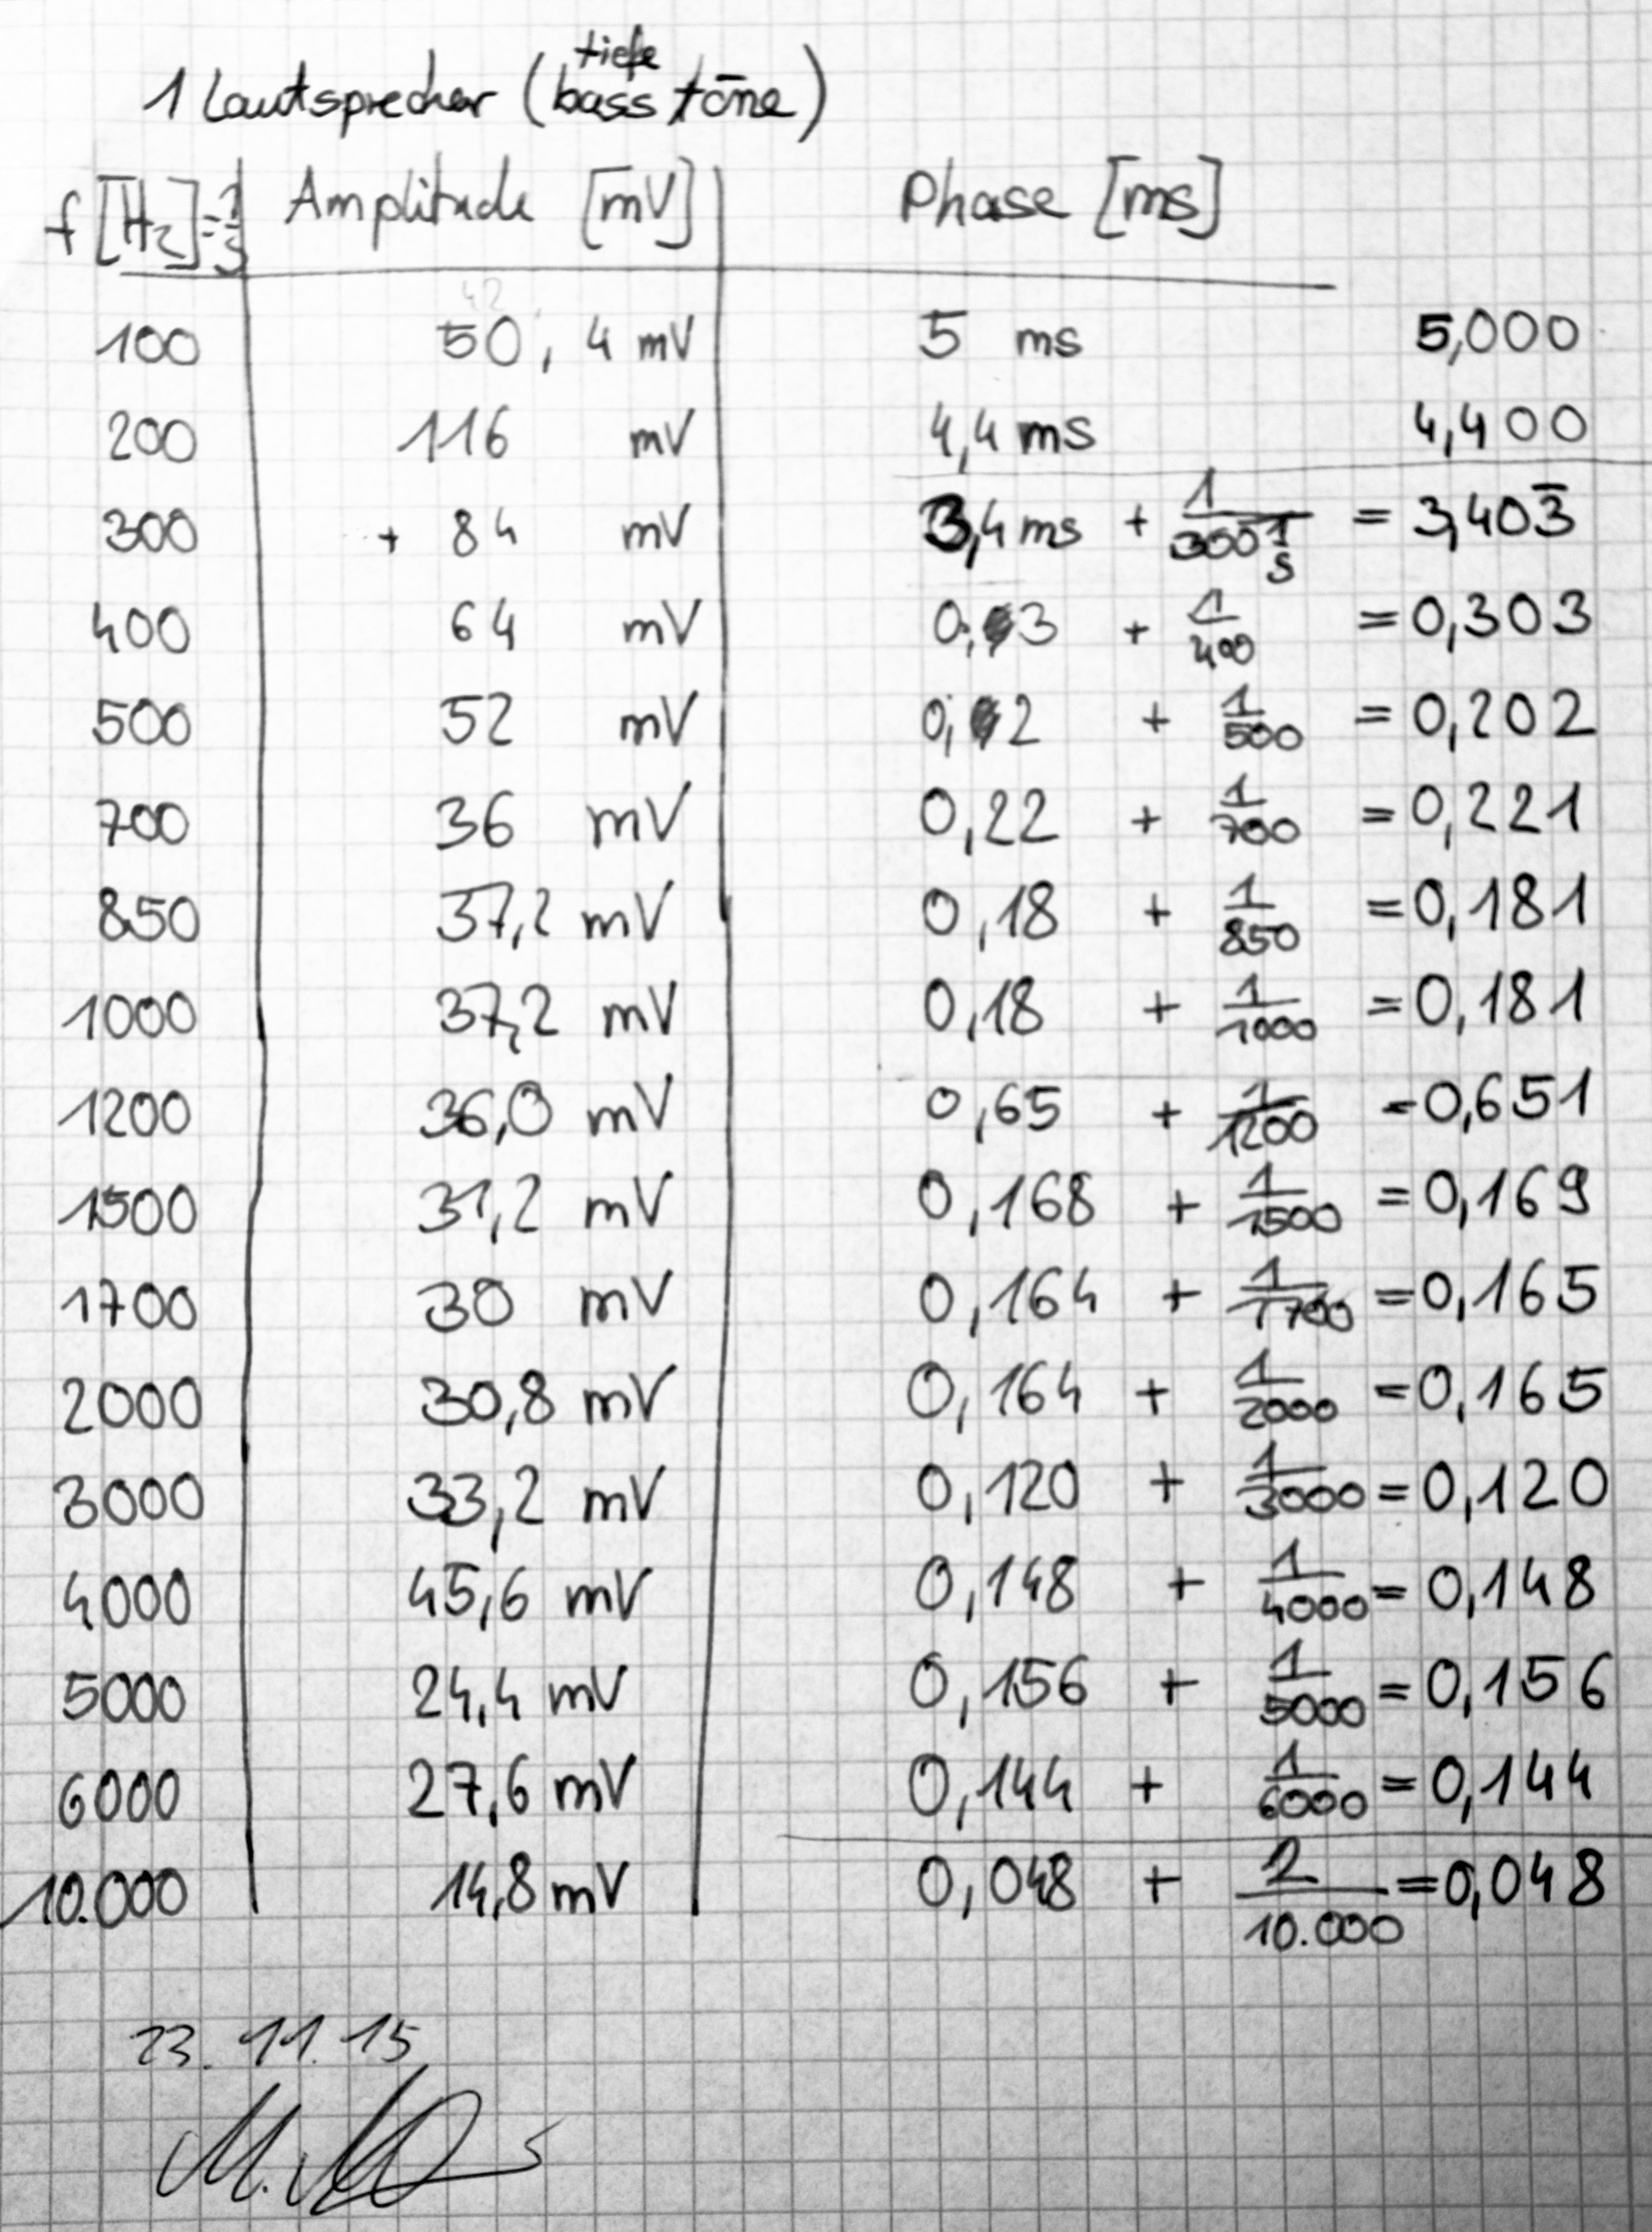 tiefe
1 Lautsprecher (bass töne)
f [Hz]=1/s Amplitude [mV] Phase [ms]
42
100 50,4 mV 5 ms 5,000
200 116 mV 4,4 ms 4,400
300 + 84 mV 3,4 ms + 1/300 1/s = 3,403̅
400 64 mV 0,3 + 1/400 = 0,303
500 52 mV 0,2 + 1/500 = 0,202
700 36 mV 0,22 + 1/700 = 0,221
850 37,2 mV 0,18 + 1/850 = 0,181
1000 37,2 mV 0,18 + 1/1000 = 0,181
1200 36,0 mV 0,65 + 1/1200 = 0,651
1500 31,2 mV 0,168 + 1/1500 = 0,169
1700 30 mV 0,164 + 1/1700 = 0,165
2000 30,8 mV 0,164 + 1/2000 = 0,165
3000 33,2 mV 0,120 + 1/3000 = 0,120
4000 45,6 mV 0,148 + 1/4000 = 0,148
5000 24,4 mV 0,156 + 1/5000 = 0,156
6000 27,6 mV 0,144 + 1/6000 = 0,144
10.000 14,8 mV 0,048 + 2/10.000 = 0,048
23.11.15